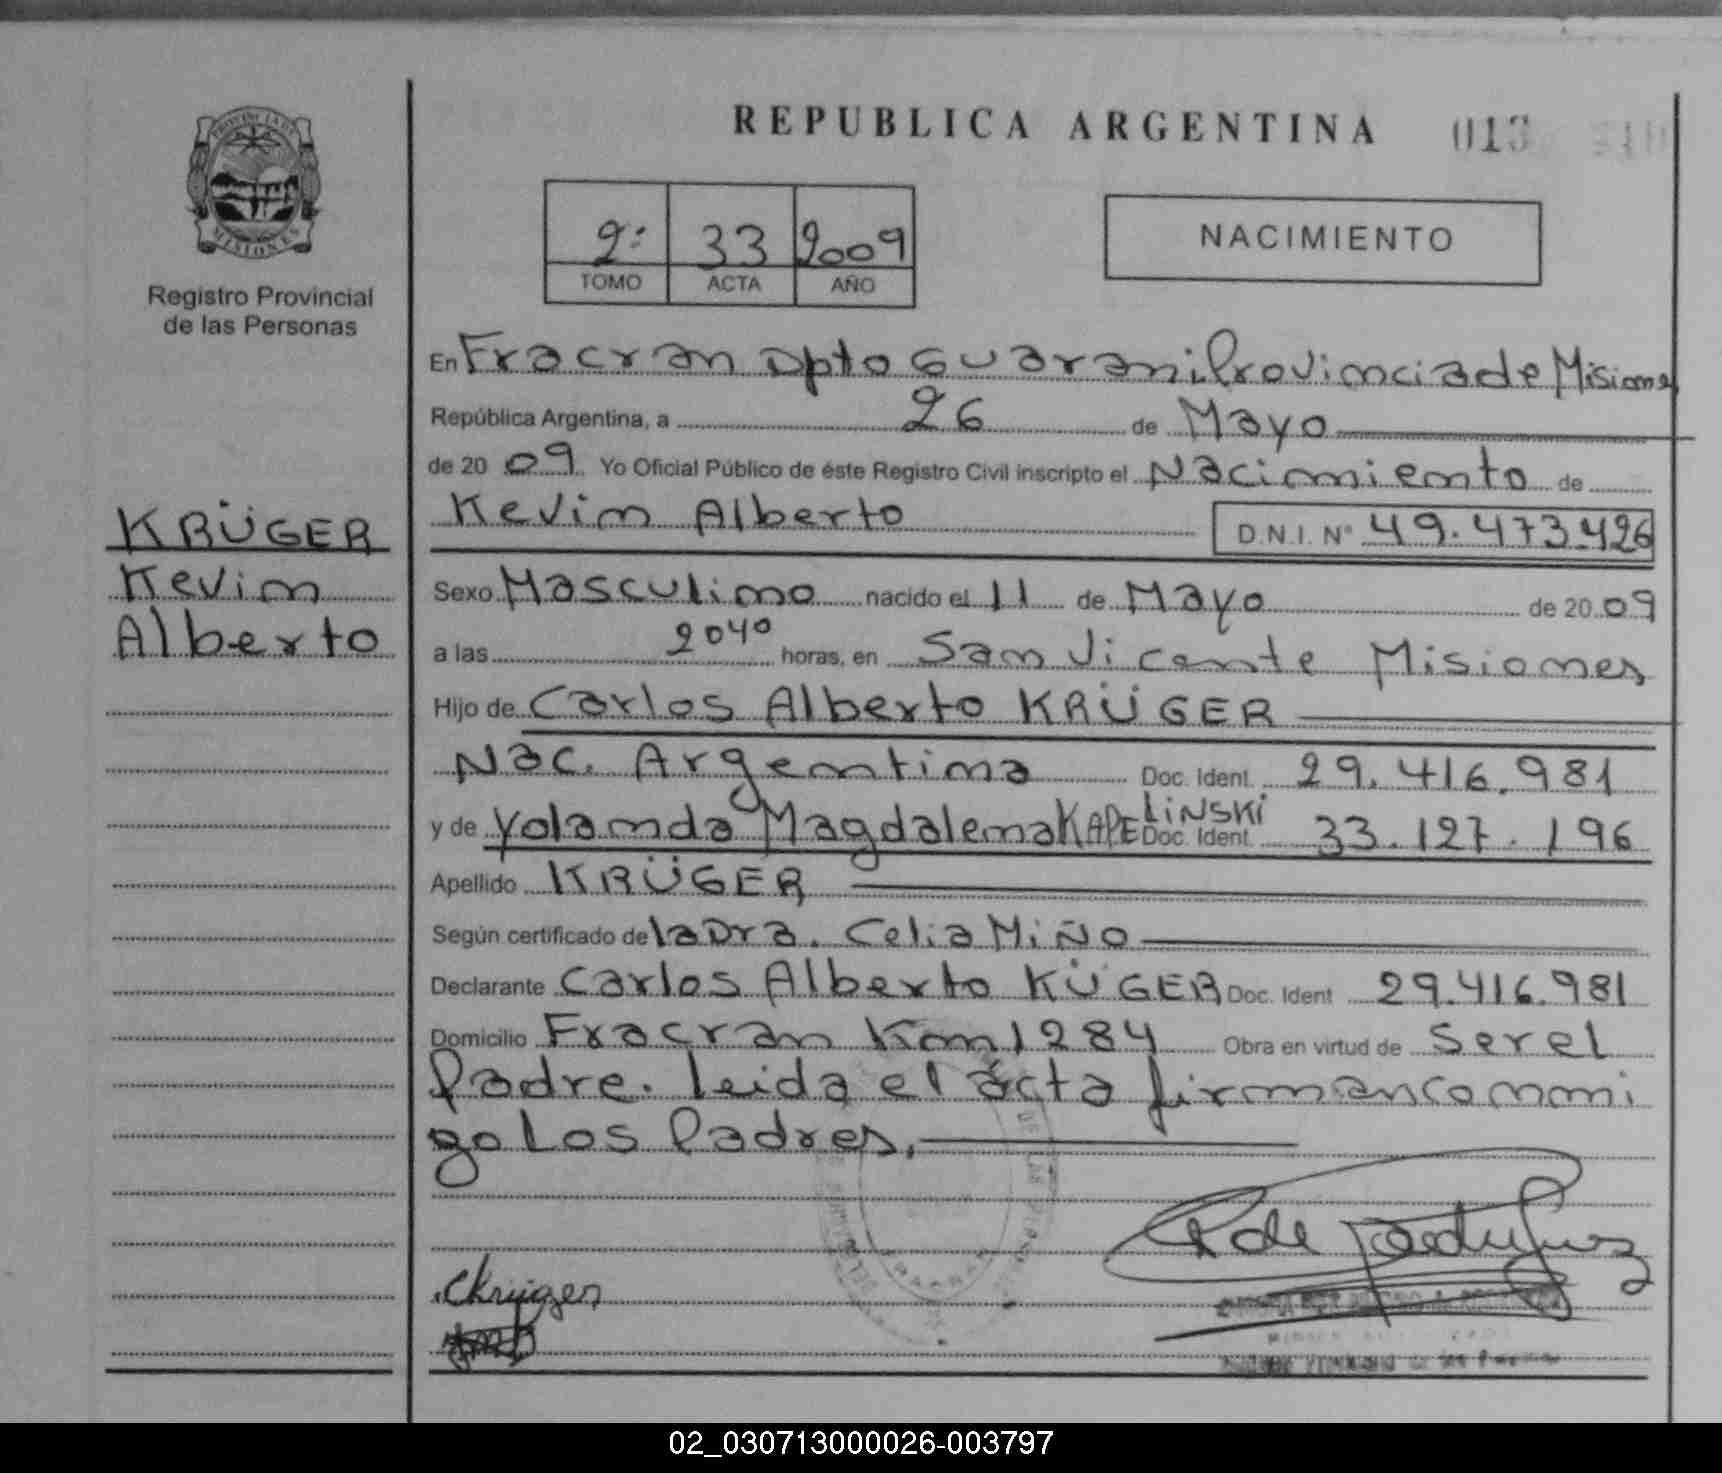 REPUBLICA ARGENTINA
013
PROVINCIA DE
MISIONES
Registro Provincial
de las Personas
2º 33 2009
TOMO ACTA AÑO
NACIMIENTO
En Fracran Dpto Guarani Provincia de Misiones
República Argentina, a 26 de Mayo
de 20 09 Yo Oficial Público de éste Registro Civil inscripto el Nacimiento de
Kevin Alberto D.N.I. Nº 49.473.426
KRÜGER
Kevin
Alberto
Sexo Masculino nacido el 11 de Mayo de 20 09
a las 2040 horas, en San Vicente Misiones
Hijo de Carlos Alberto KRÜGER
Nac. Argentina Doc. Ident. 29.416.981
y de Yolanda Magdalena KAPELINSKI Doc. Ident. 33.127.196
Apellido KRÜGER
Según certificado de la Dra. Celia MiÑO
Declarante Carlos Alberto KÜGER Doc. Ident 29.416.981
Domicilio Fracran Km 1284 Obra en virtud de Ser el
Padre. leida el ácta firman conmi
go Los Padres.
CKrüger
02_030713000026-003797